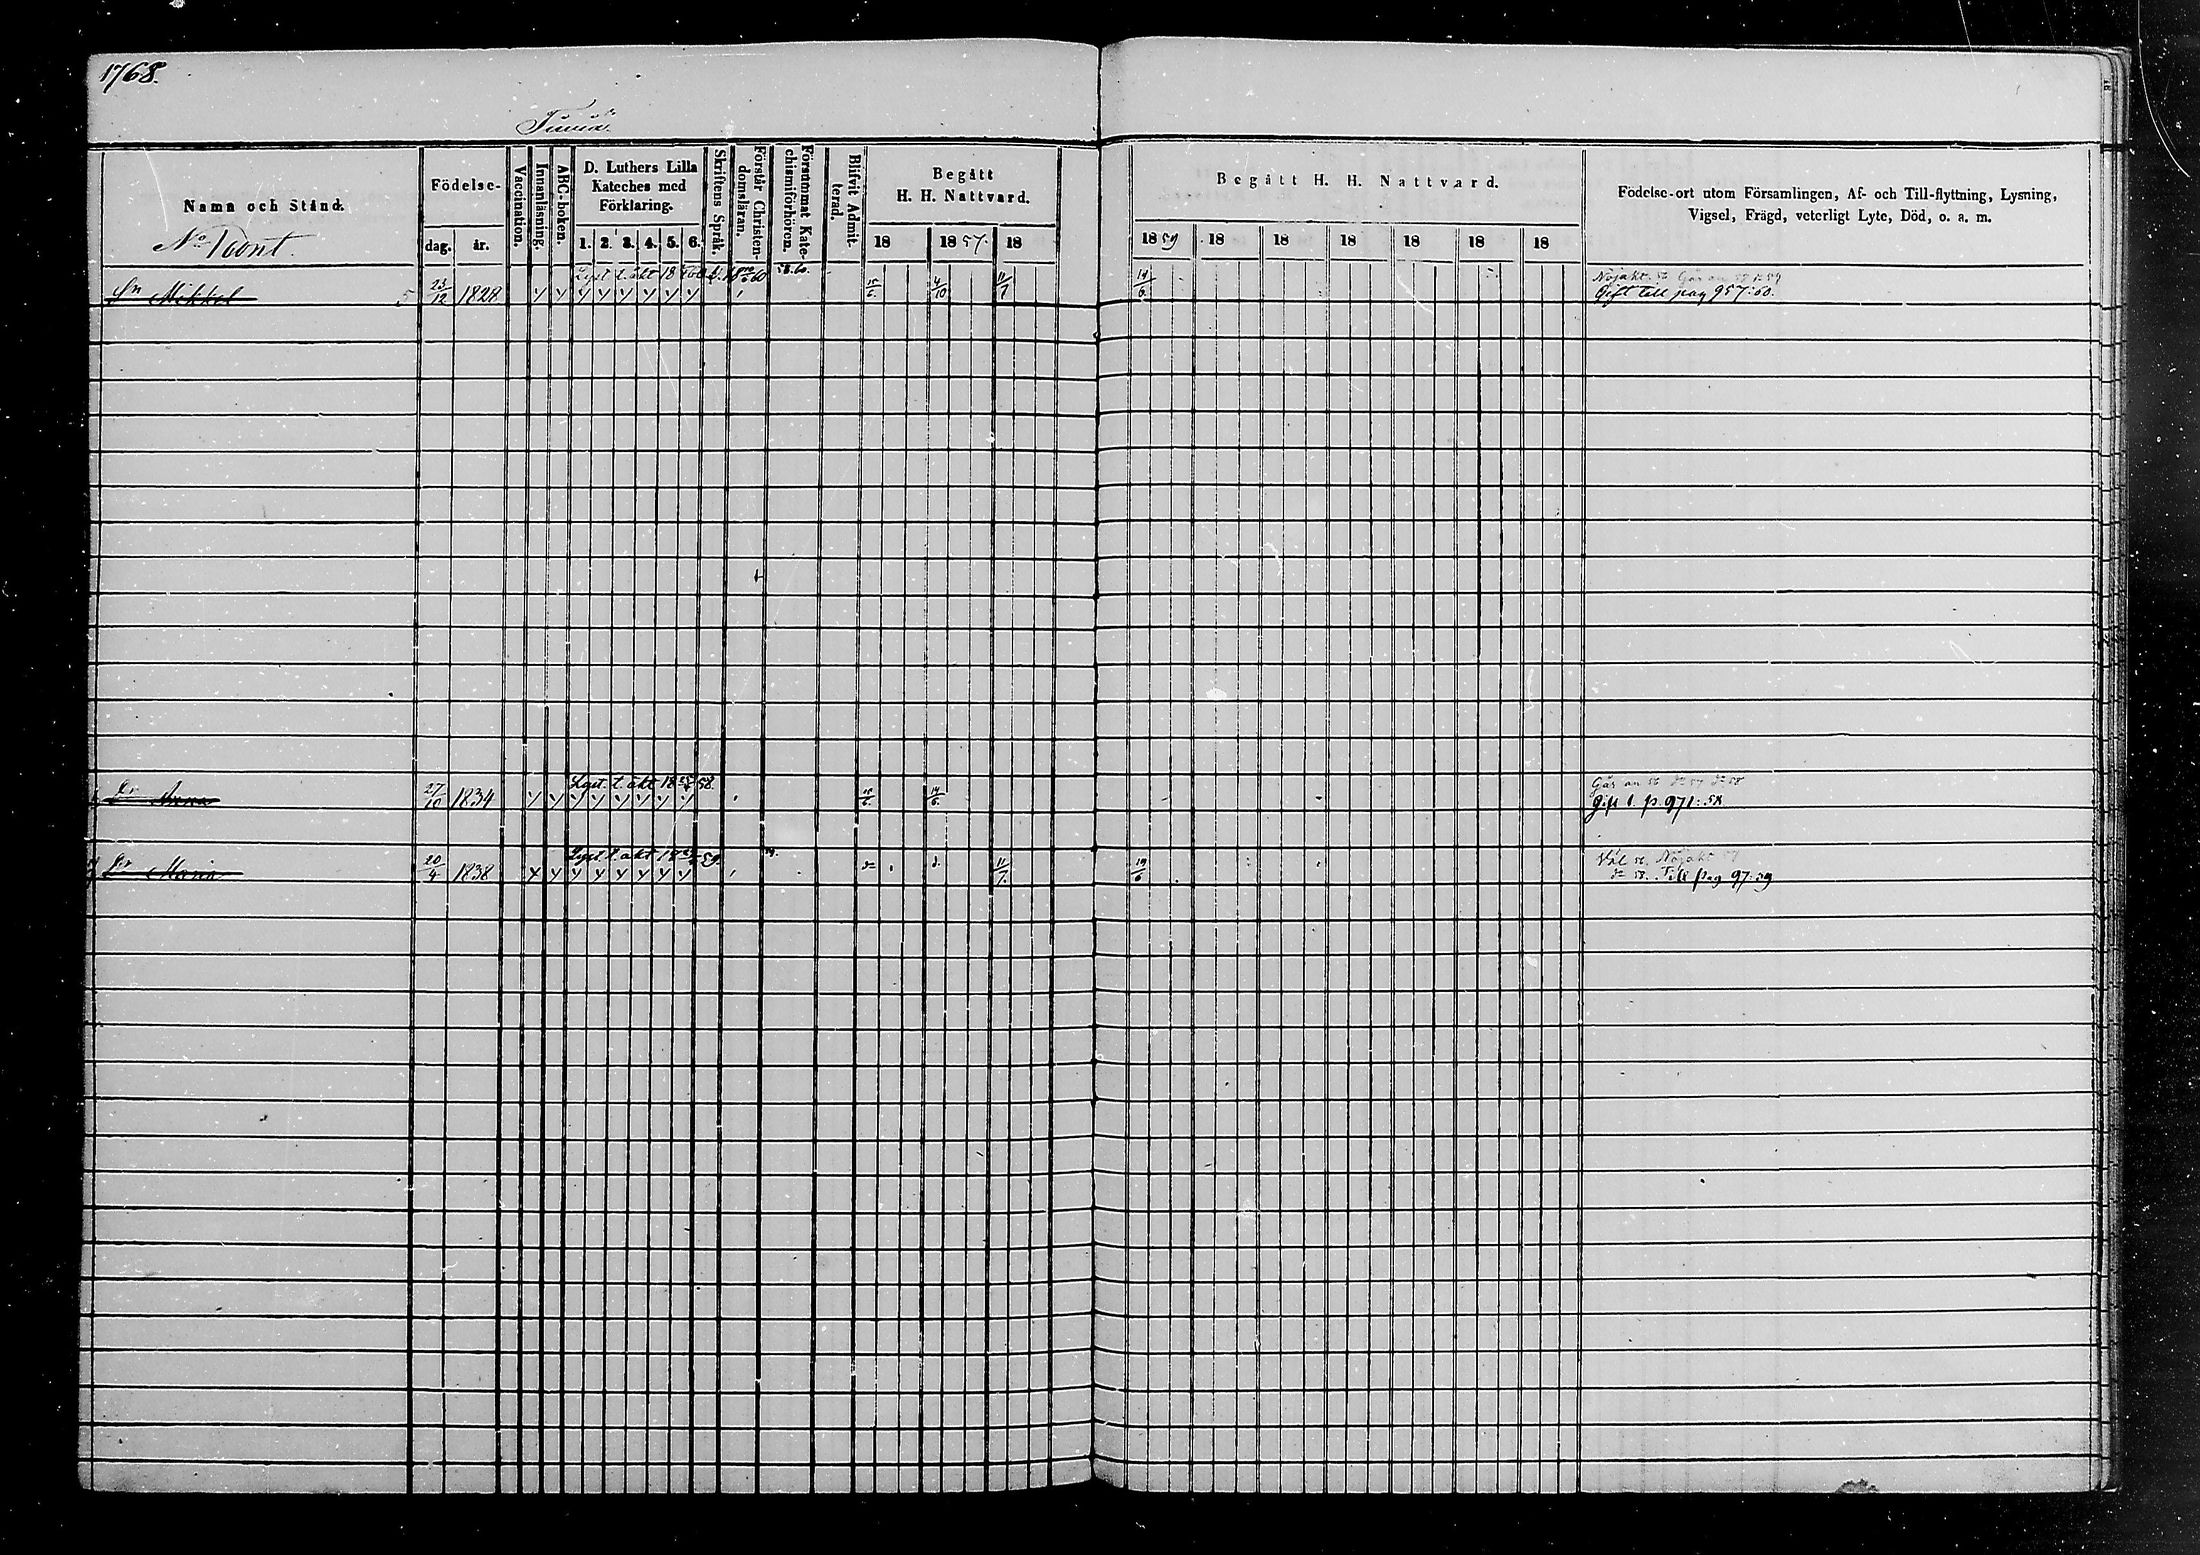 1768.
Namn och Stånd.
No Pont.
Födelse-
dag.
år.
Vaccination.
Innanläsning.
ABC-boken.
D. Luthers Lilla
Kateches med
Förklaring.
1. 2. 3. 4. 5. 6.
Skriftens Språk.
Förstår Christen-
domsläran.
Försummat Kate-
chismiförhören.
Blifvit Admit-
terad.
Begått
H. H. Nattvard.
18
1857.
18
Begått H. H. Nattvard.
1859
18
18
18
18
18
18
Födelse-ort utom Församlingen, Af- och Till-flyttning, Lysning,
Vigsel, Frägd, veterligt Lyte, Död, o. a. m.
Lyst. t. äkt 18
Sn Mikkel 5 23/12 1828 4/10 11/7 19/6
Gift till pag 957:60.
Lyst. t. äkt 18 58.
Dr Anna 27/10 1834 19/6
Gift t. p. 971:58
Lyst t äkt 18 59.
Dr Maria 20/4 1838 11/7 19/6
Väl 56. Nöjakt 57
do 58. Till pag 97:59